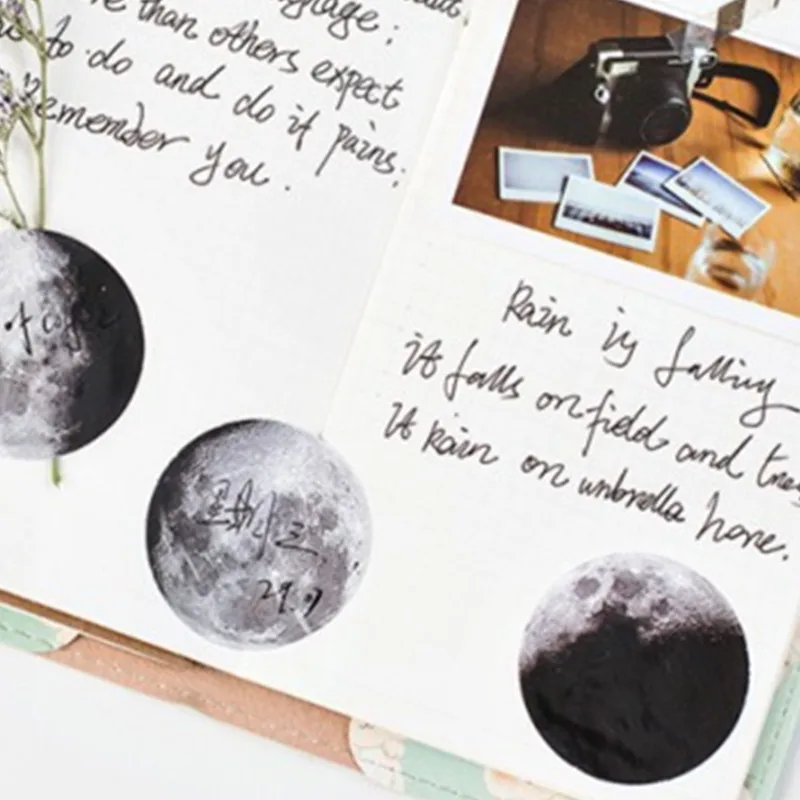 than others expect
to do and do it pains.
Remember you.
星期三
29.9
Rain is falling
it falls on field and trees
it Rain on unbrella hore.